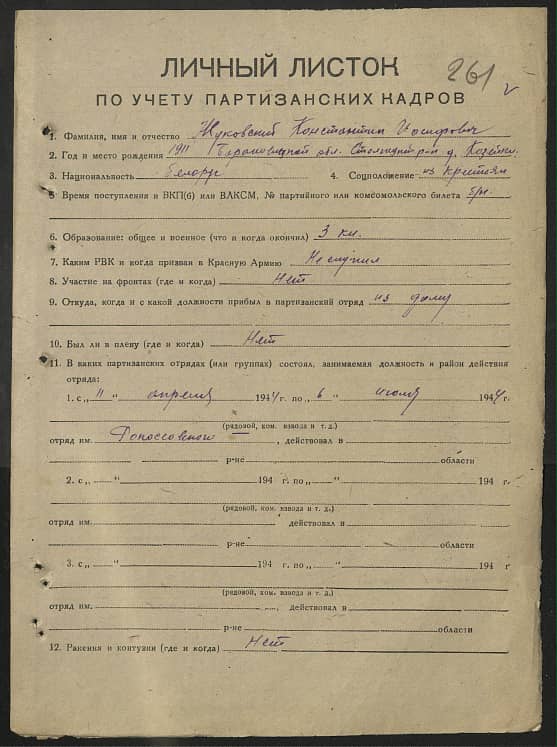 261 v
ЛИЧНЫЙ ЛИСТОК
ПО УЧЕТУ ПАРТИЗАНСКИХ КАДРОВ
1. Фамилия, имя и отчество Жуковский Константин Иосифович
2. Год и место рождения 1911 Барановицкой обл. р-н д.
3. Национальность белорус 4. Соцположение из крестьян
5 Время поступления в ВКП(б) или ВЛКСМ, № партийного или комсомольского билета
6. Образование: общее и военное (что и когда окончил) 3 кл.
7. Каким РВК и когда призван в Красную Армию Не служил
8. Участие на фронтах (где и когда) Нет
9. Откуда, когда и с какой должности прибыл в партизанский отряд из дому
10. Был ли в плену (где и когда) Нет
11. В каких партизанских отрядах (или группах) состоял, занимаемая должность и район действия
отряда:
1. с „ 11 " апреля 1944 г. по „ 6 " июля 1944 г.
(рядовой, ком. взвода и т. д.)
отряд им. , действовал в
р-не области
2. с „ " 194 г. по „ " 194 г.
(рядовой, ком. взвода и т. д.)
отряд им. действовал в
р-не области
3. с „ " 194 г. по „ " 194 г
(рядовой, ком. взвода и т. д.)
отряд им. , действовал в
р-не области
12. Ранения и контузии (где и когда) Нет